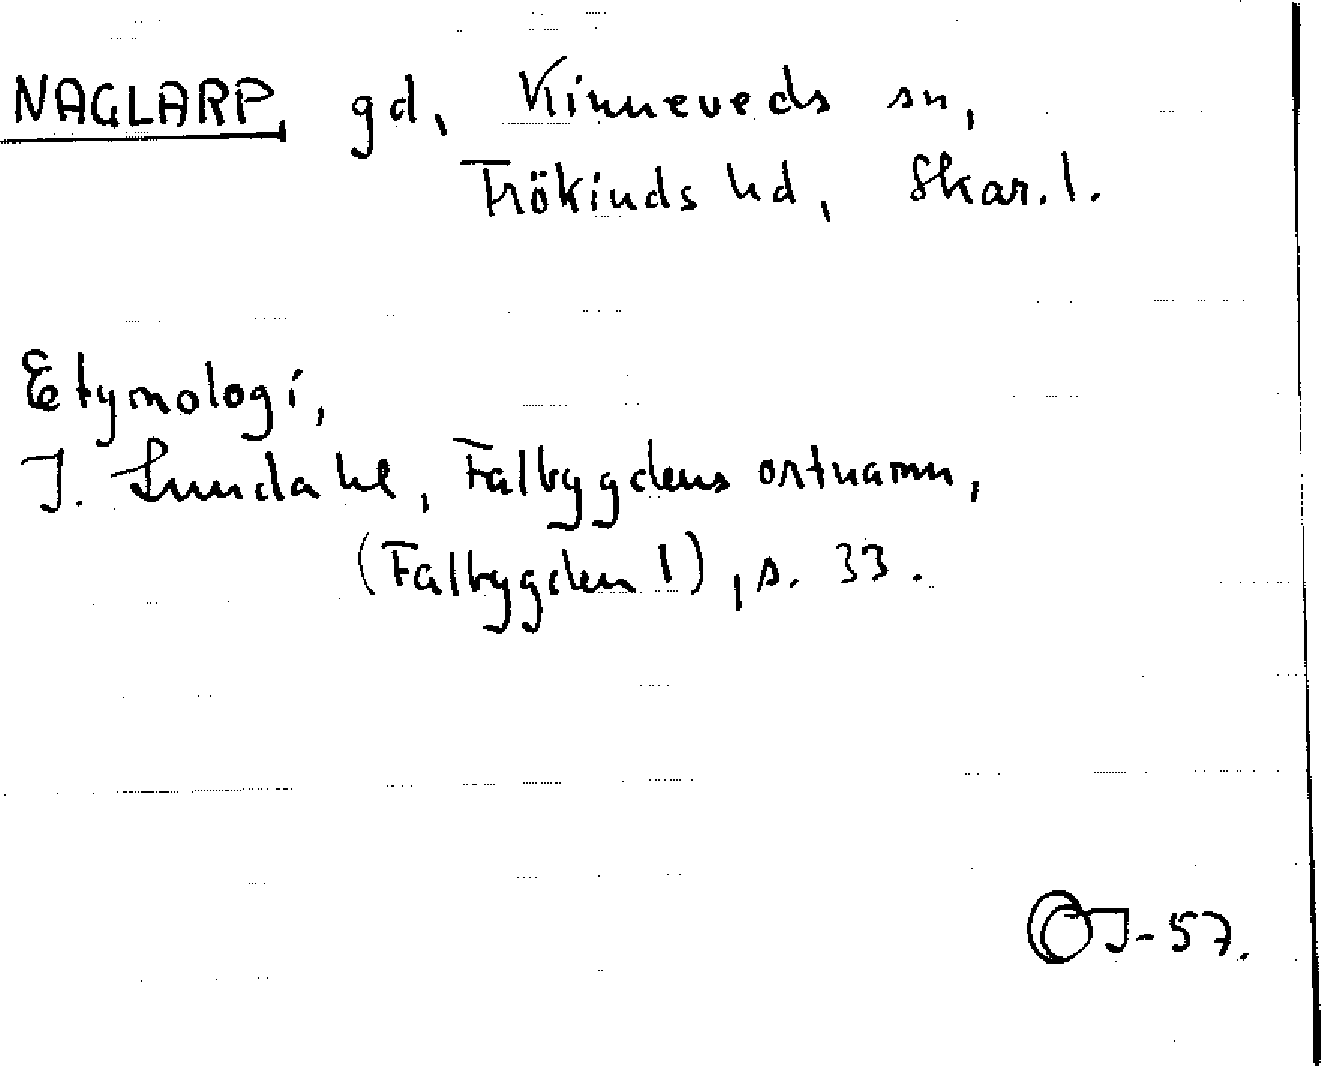 NAGLARP, gd, Kinneveds sn,
Frökinds hd, Skar. l.
Etymologi,
I. Lundahl, Falbygdens ortnamn,
(Falbygden 1), s. 33.
J-57.